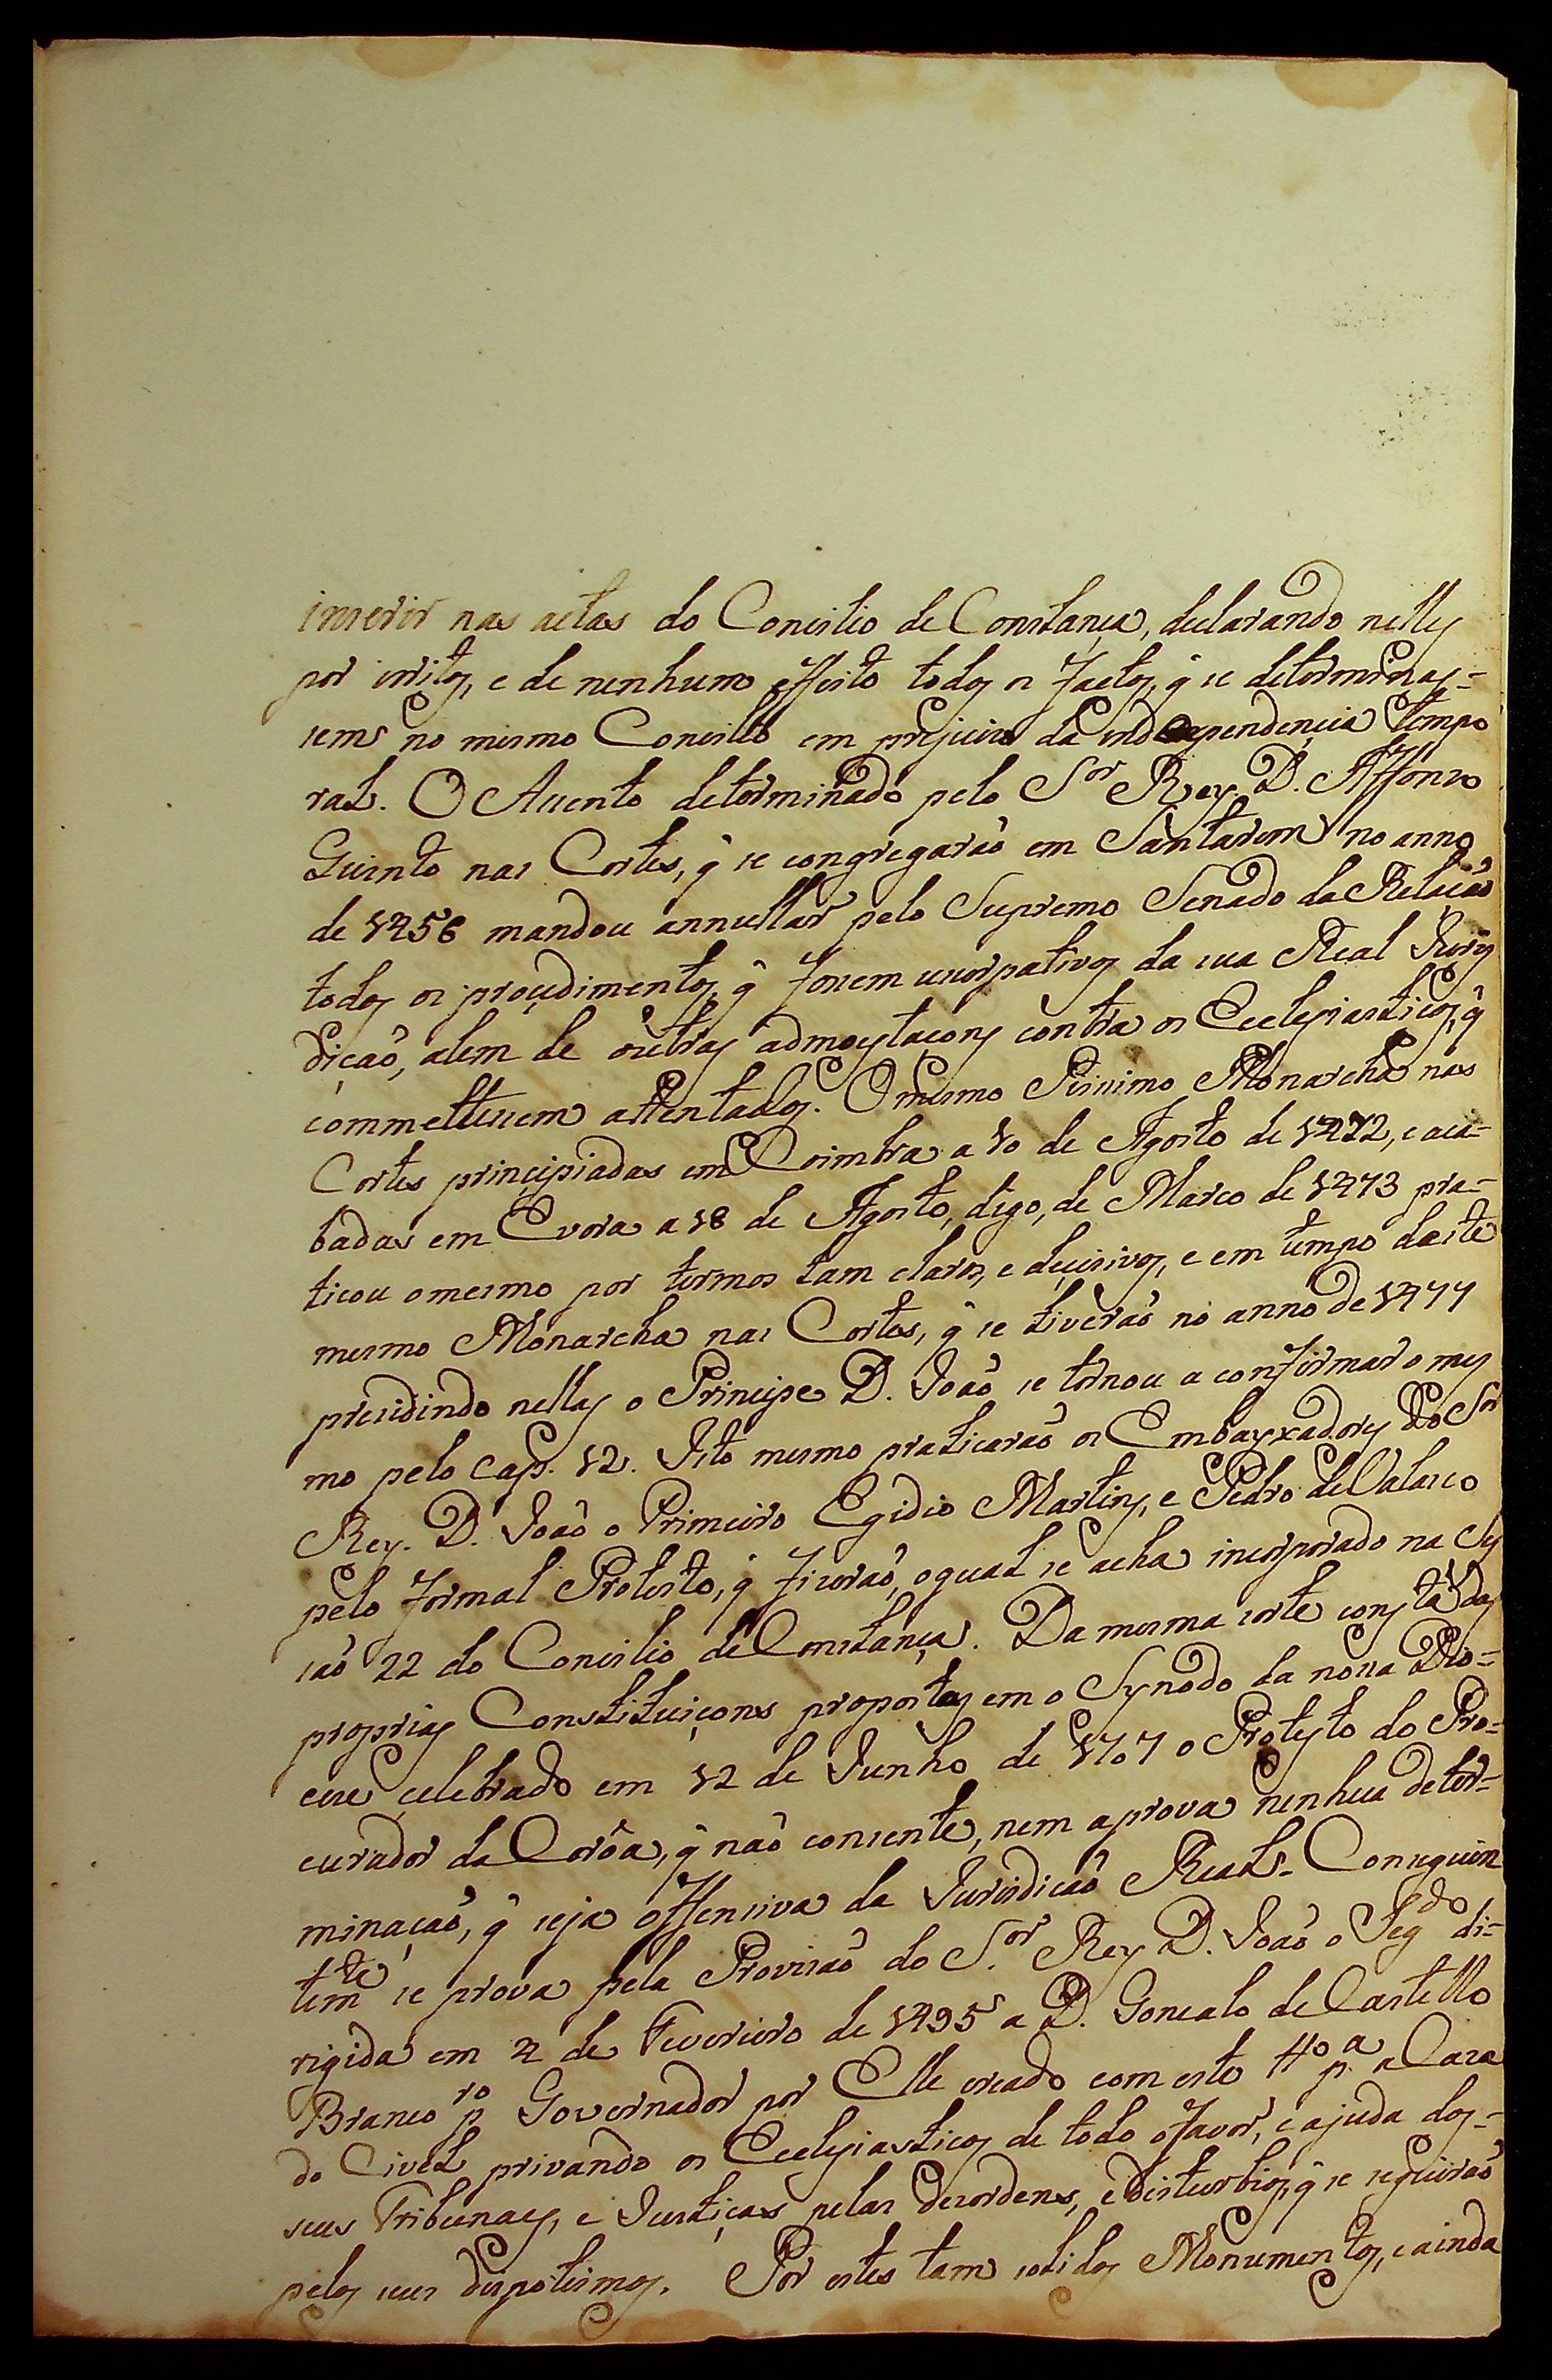 inserir nas actas do Concilio de Constança, declarando nelles
por irritos, e de nenhum effeito todos os factos, q̃ se determinas=
sem no mesmo Concilio em prejuizo da independencia tempo
ral. O Assento determinado pelo Sor Rey D. Affonso
Quinto nas Cortes, q̃ se congregarão em Santarem no anno
de 1456 mandou annullar pelo Supremo Senado da Relação
todos os procedimentos, q̃ fossem uzorpativos da sua Real Juris
dição, alem de outras admoestaçons contra os Ecclesiasticos, q̃
commettessem attentados. O mesmo Serinimo Monarcha nas
Cortes principiadas em Coimbra a 10 de Agosto de 1472, e aca=
badas em Evora a 18 de Agosto, digo, de Marco de 1473 pra=
ticou o mesmo por termos tam claros, e decisivos, e em tempo deste
mesmo Monarcha nas Cortes, q̃ se tiverão no anno de 1477
presidindo nellas o Principe D. João se tornou a confirmar o mes
mo pelo cap. 12. Isto mesmo praticarão os Embayxadores do Sor
Rey. D. João o Primeiro Egidio Martins, e Pedro de Valasco
pelo formal Protesto, q̃ fizerão, o qual se acha incorporado na Ses
são 22 do Concilio de Constança. Da mesma sorte consta das
proprias Constituiçons propostas em o Synodo da nossa Dio=
cese celebrado em 12 de Junho de 1707 o Protesto do Pro=
curador da Corôa, q̃ não consente, nem aprova nenhua deter=
minação, q̃ seja offensiva da Jurisdicão Real. Conseguin
temte se prova pela Provisão do S.or Rey D. João o Segdo di=
rigida em 4 de Fevereiro de 1495 a D. Goncalo de Castello
Branco pro Governador por Elle creado com este tto pa a Caza
do Civel privando os Ecclesiasticos de todo o favor, e ajuda dos=
seus Tribunaes, e Justiças pelas dezordens, e disturbios, q̃ se seguirão
pelos seus dispotismos. Por estes tam solidos Monumentos, e ainda